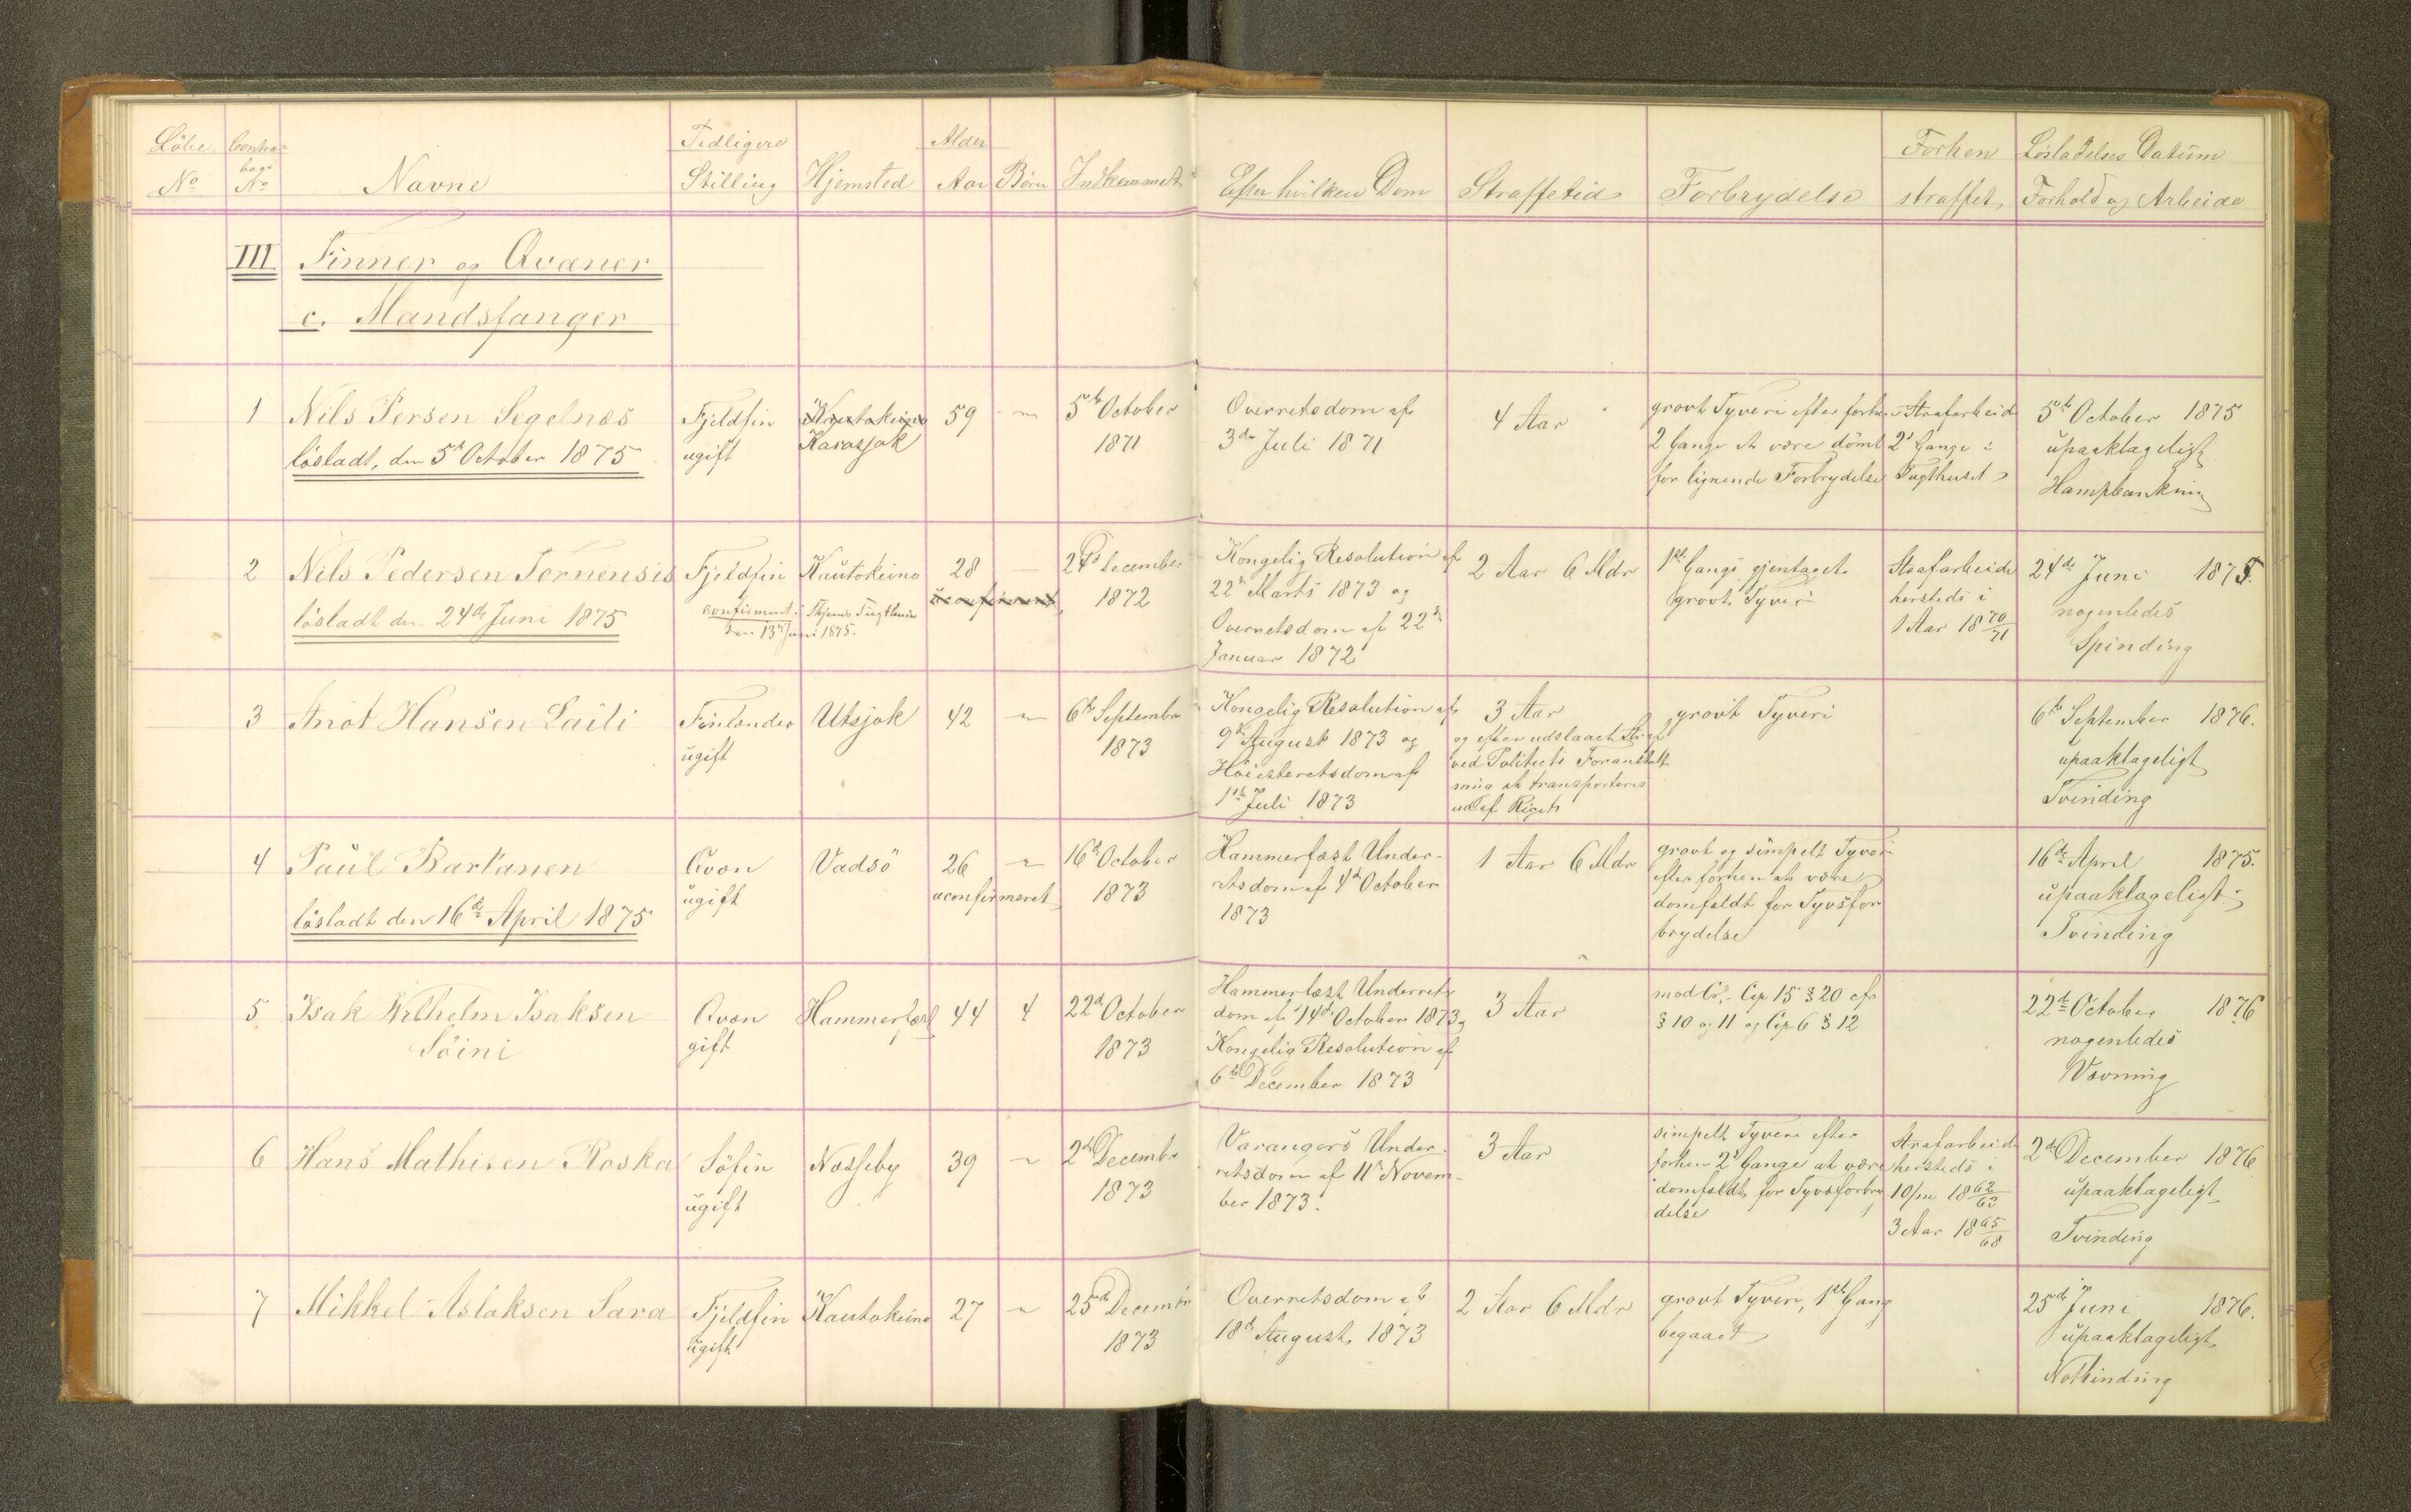 Löbe No
Contra-bogs No
Navne
Tidligere Stilling
Hjemsted
Alder Aar
Börn
Indkommet
Efter hvilken Dom
Straffetid
Forbrydelse
Forhen straffet,
Lösladelses Datum
Forhold og Arbeide
III Finner og Qvæner
c. Mandsfanger
1 Nils Persen Segelnæs
lösladt, den 5te October 1875
Fjeldfin
ugift
Kautokeino
Karasjok
59
5te October
1871
Overretsdom af
3die Juli 1871
4 Aar
grovt Tyveri efter forhen
2 Gange at være dömt
for lignende Forbrydelse
Strafarbeide
2 Gange i
Tugthuset
5te October 1875
upaaklageligt
Hampbankning
2 Nils Pedersen Tornensis
lösladt den 24de Juni 1875
Fjeldfin
confirmert i Thjems Tugthuus
den 13de Juni 1875.
Kautokeino
28
uconfirmeret,
24de December
1872
Kongelig Resolution af
22de Marts 1873 og
Overretsdom af 22de
Januar 1872
2 Aar 6 Mdr
1ste Gangs gjentaget
grovt Tyveri
Strafarbeide
hersteds i
1 Aar 1870/71
24de Juni 1875.
nogenledes
Spinding
3 Anot Hansen Laili
Finlænder
ugift
Utsjok
42
6te September
1873
Kongelig Resolution af
9de August 1873 og
Höiesteretsdom af
1ste Juli 1873
3 Aar
og efter udstaaet Straf
ved Politiets Foranstalt
ning at transporteres
ud af Riget
grovt Tyveri
6te September 1876.
upaaklageligt
Tvinding
4 Paul Bartanen
lösladt den 16de April 1875
Qvæn
ugift
Vadsö
26
uconfirmeret
16de October
1873
Hammerfæst Under-
retsdom af 4de October
1873
1 Aar 6 Mdr
grovt og simpelt Tyveri
efter forhen at være
domfældt for Tyvsfor
brydelse
16de April 1875.
upaaklageligt
Tvinding
5 Isak Wilhelm Isaksen
Söini
Qvæn
gift
Hammerfæst
44
4
22de October
1873
Hammerfæst Underrets
dom af 14de October 1873 og
Kongelig Resolution af
6te December 1873
3 Aar
mod Cr. Cap 15 § 20 cfr
§ 10 og 11 og Cap 6 § 12
22de October 1876
nogenledes
Vævning
6 Hans Mathisen Roska
Söfin
ugift
Næsseby
39
2den Decembr
1873
Varangers Under-
retsdom af 11te Novem-
ber 1873.
3 Aar
simpelt Tyveri efter
forhen 2 Gange at være
domfældt for Tyvsforbry
delse
Strafarbeide
hersteds i
10/m 1862/63
3 Aar 1865/68
2den December 1876
upaaklageligt
Tvinding
7 Mikkel Aslaksen Sara
Fjeldfin
ugift
Kautokeino
27
25de Decembr
1873
Overretsdom af
18de August 1873
2 Aar 6 Mdr
grovt Tyveri, 1ste Gang
begaaet
25de Juni 1876.
upaaklageligt
Notbinding